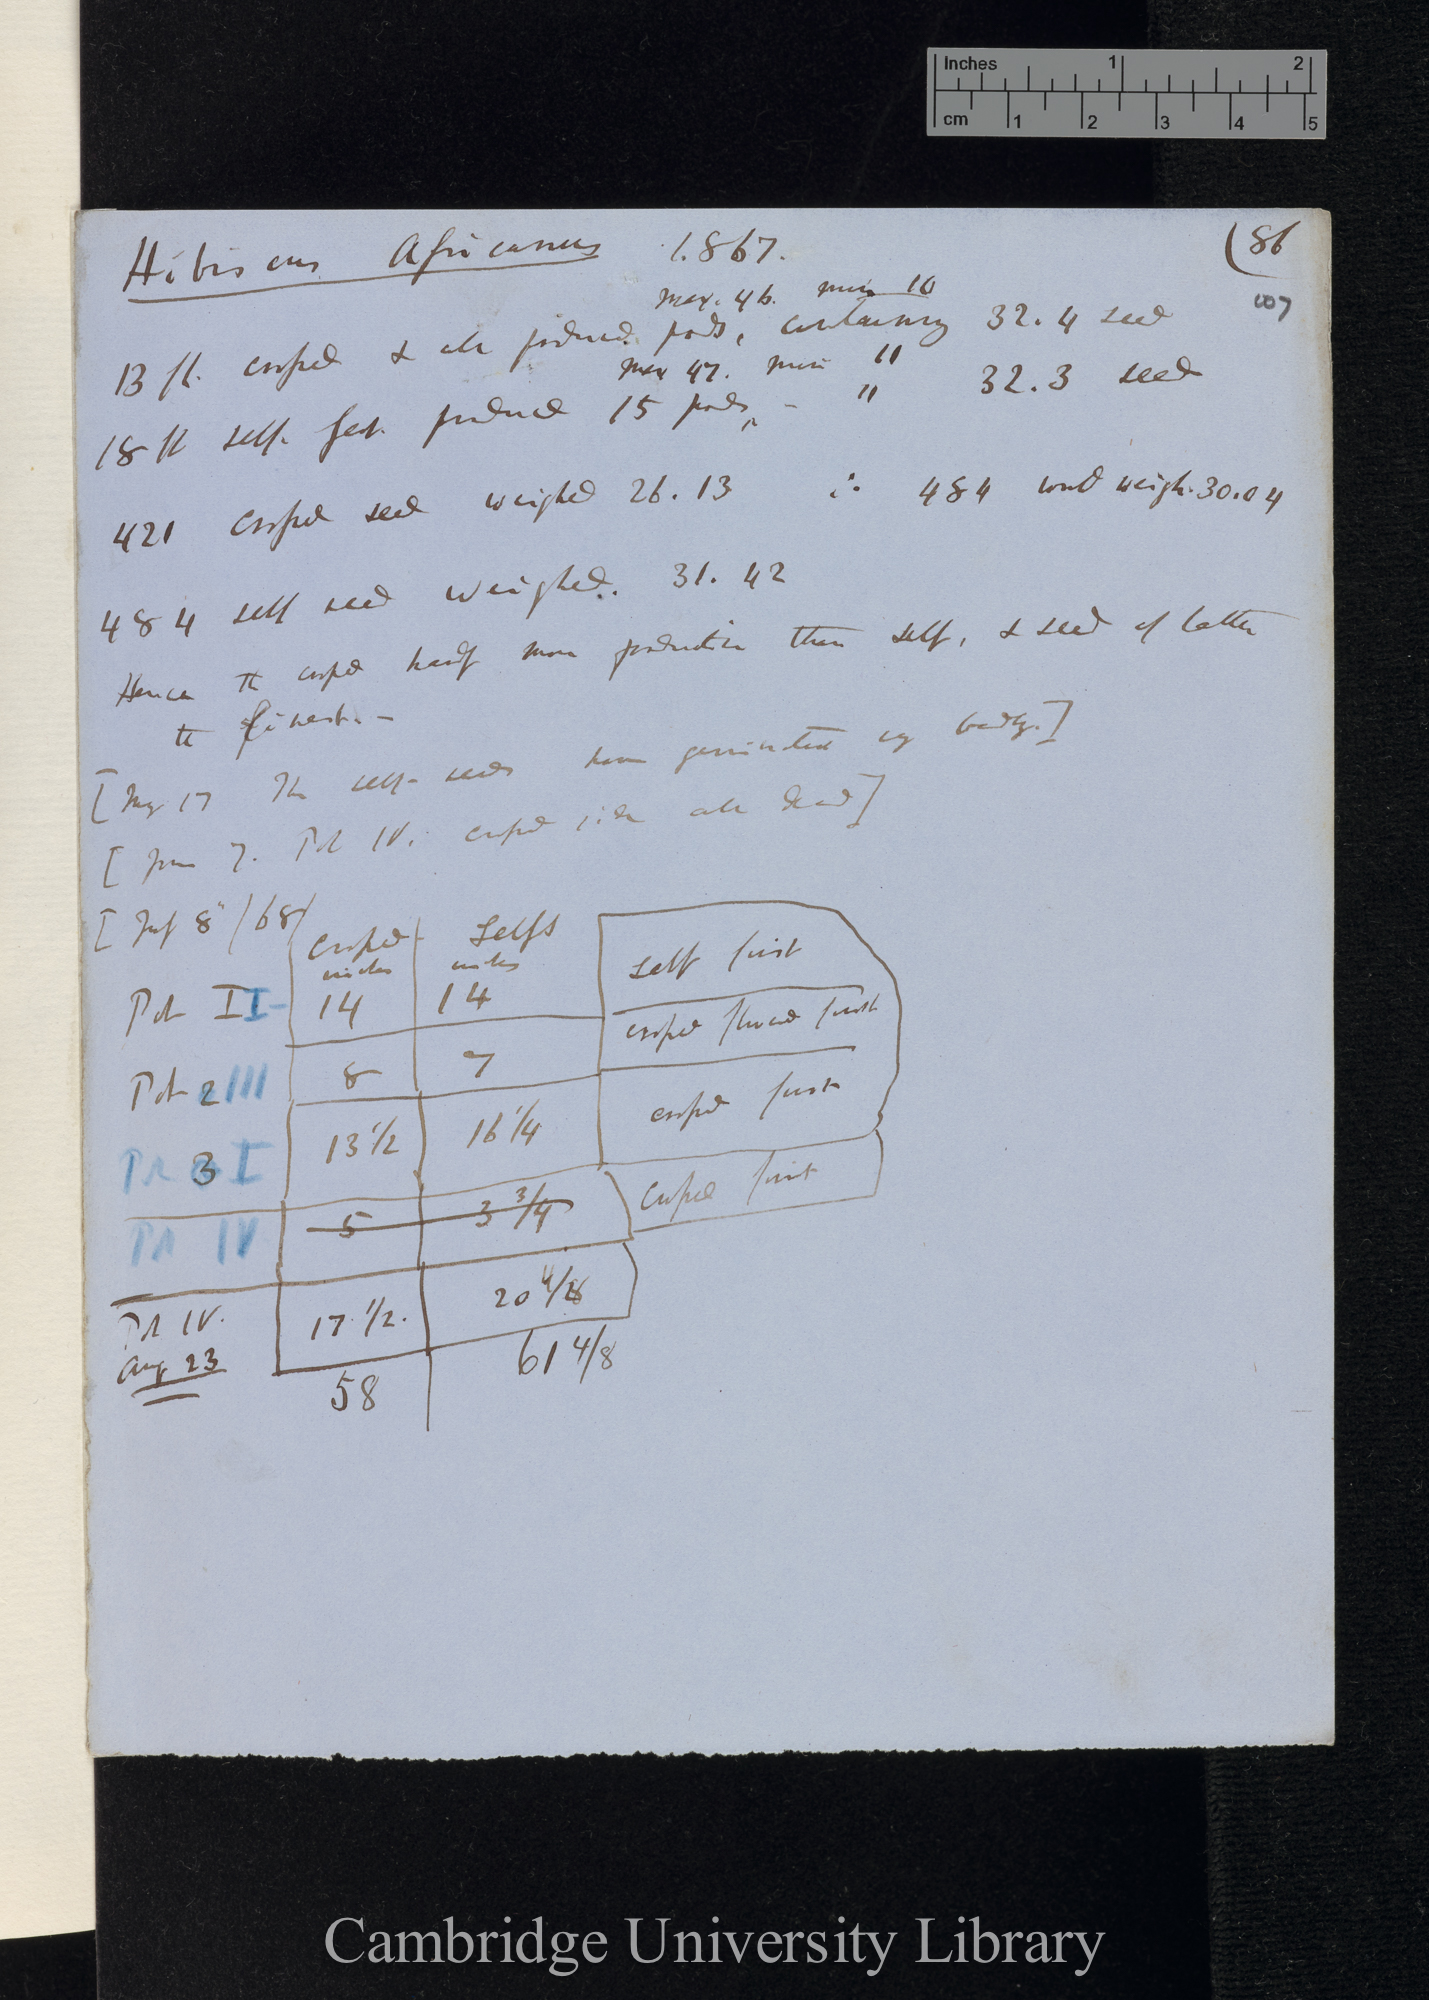 Inches 1 2
cm 1 2 3 4 5
Hibiscus Africanus 1867. (86
107
max. 46. min 10
13 fl. crossed & all produced pods, containing 32.4 seed
max 47. min 11
18 fl self. fert. produced 15 pods, - " 32.3 seed
421 crossed seed weighed 26.13 ∴ 484 would weigh. 30.04
484 self seed weighed. 31.42
Hence the crossed hardly more productive than self, & seed of latter
the finest. —
[May 17 The self-seeds have germinated very badly.]
[June 7. Pot IV. crossed side all dead]
[July 8th/68/ Crossed Selfs
inches inches
Pot II 14 14 self first
Pot 2 III 8 7 crossed flowered first
Pot 3 I 13 1/2 16 1/4 crossed first
Pot IV 5 3 3/4 Crossed first
Pot IV. 17 1/2. 20 4/8
Aug 23
58 61 4/8
Cambridge University Library